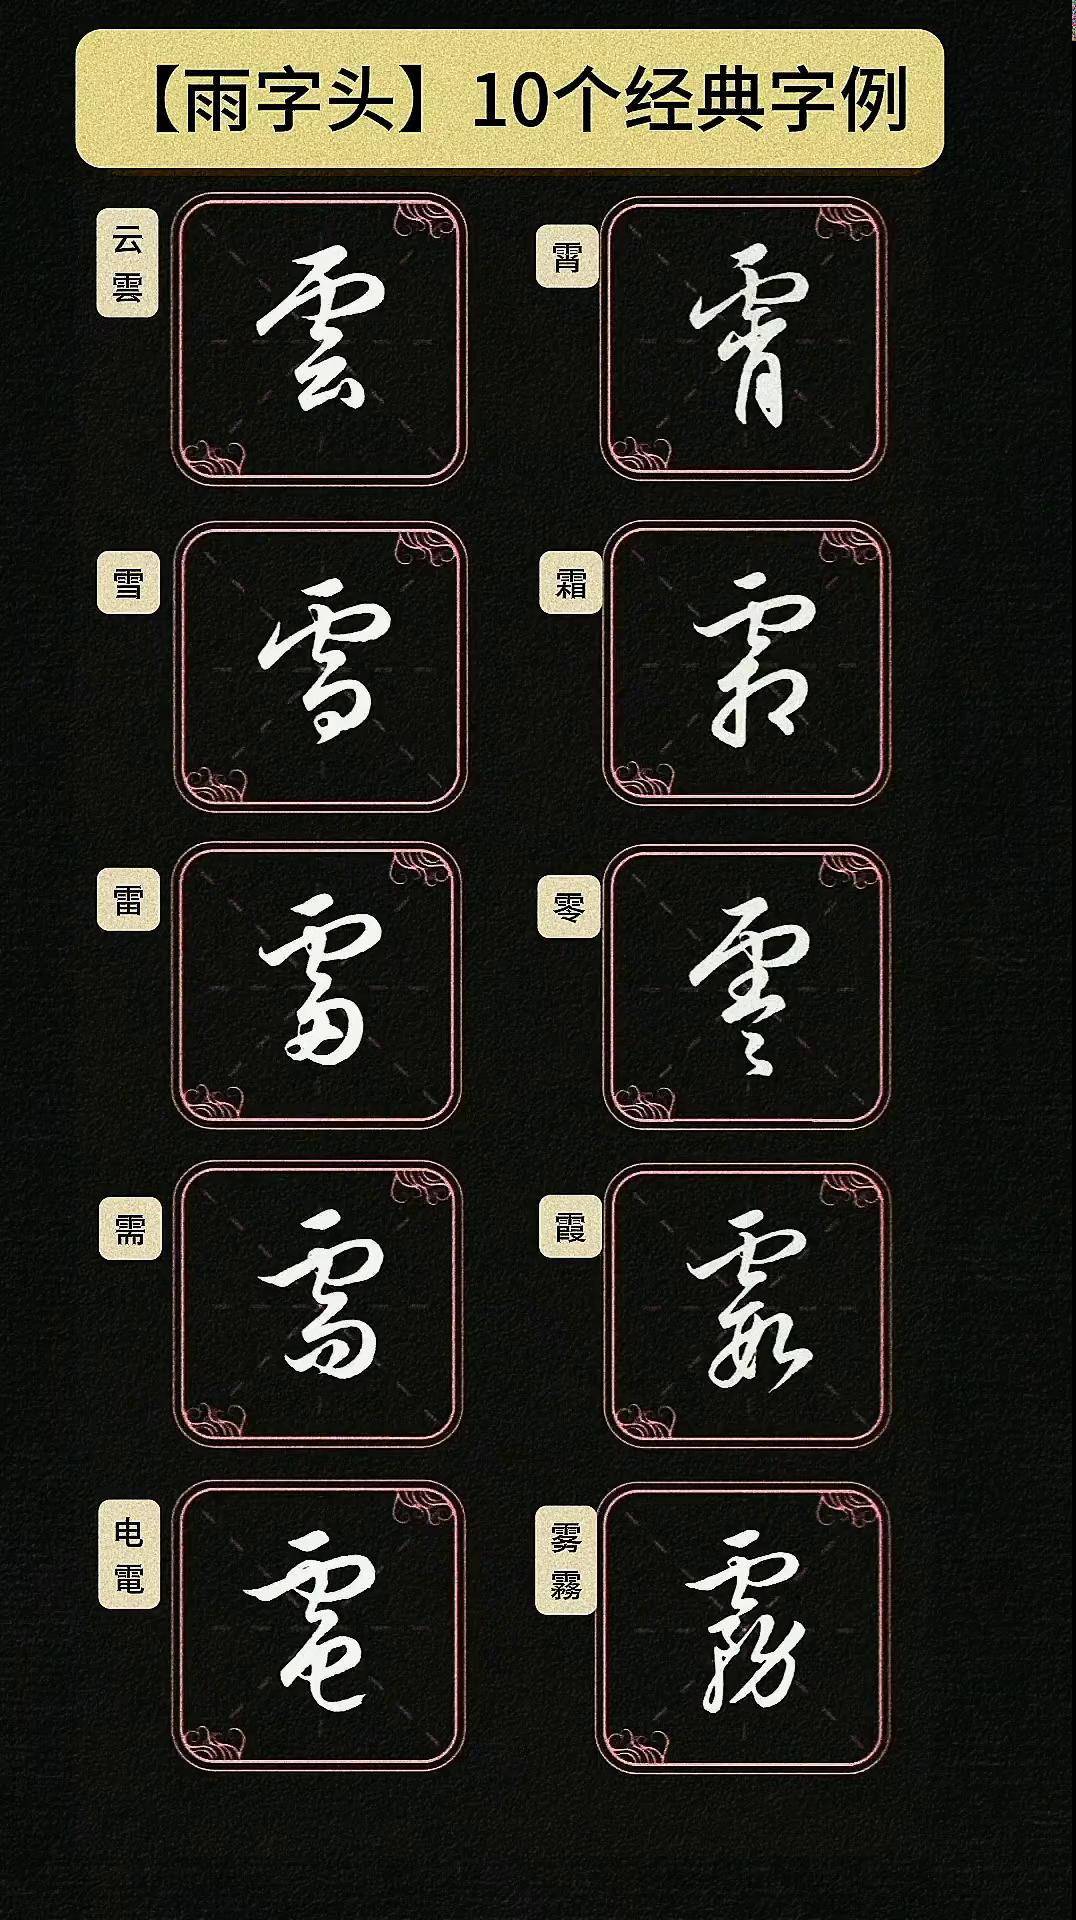 【雨字头】10个经典字例
云
雲
雲
霄
霄
雪
雪
霜
霜
雷
雷
零
零
需
需
霞
霞
电
電
電
雾
霧
霧